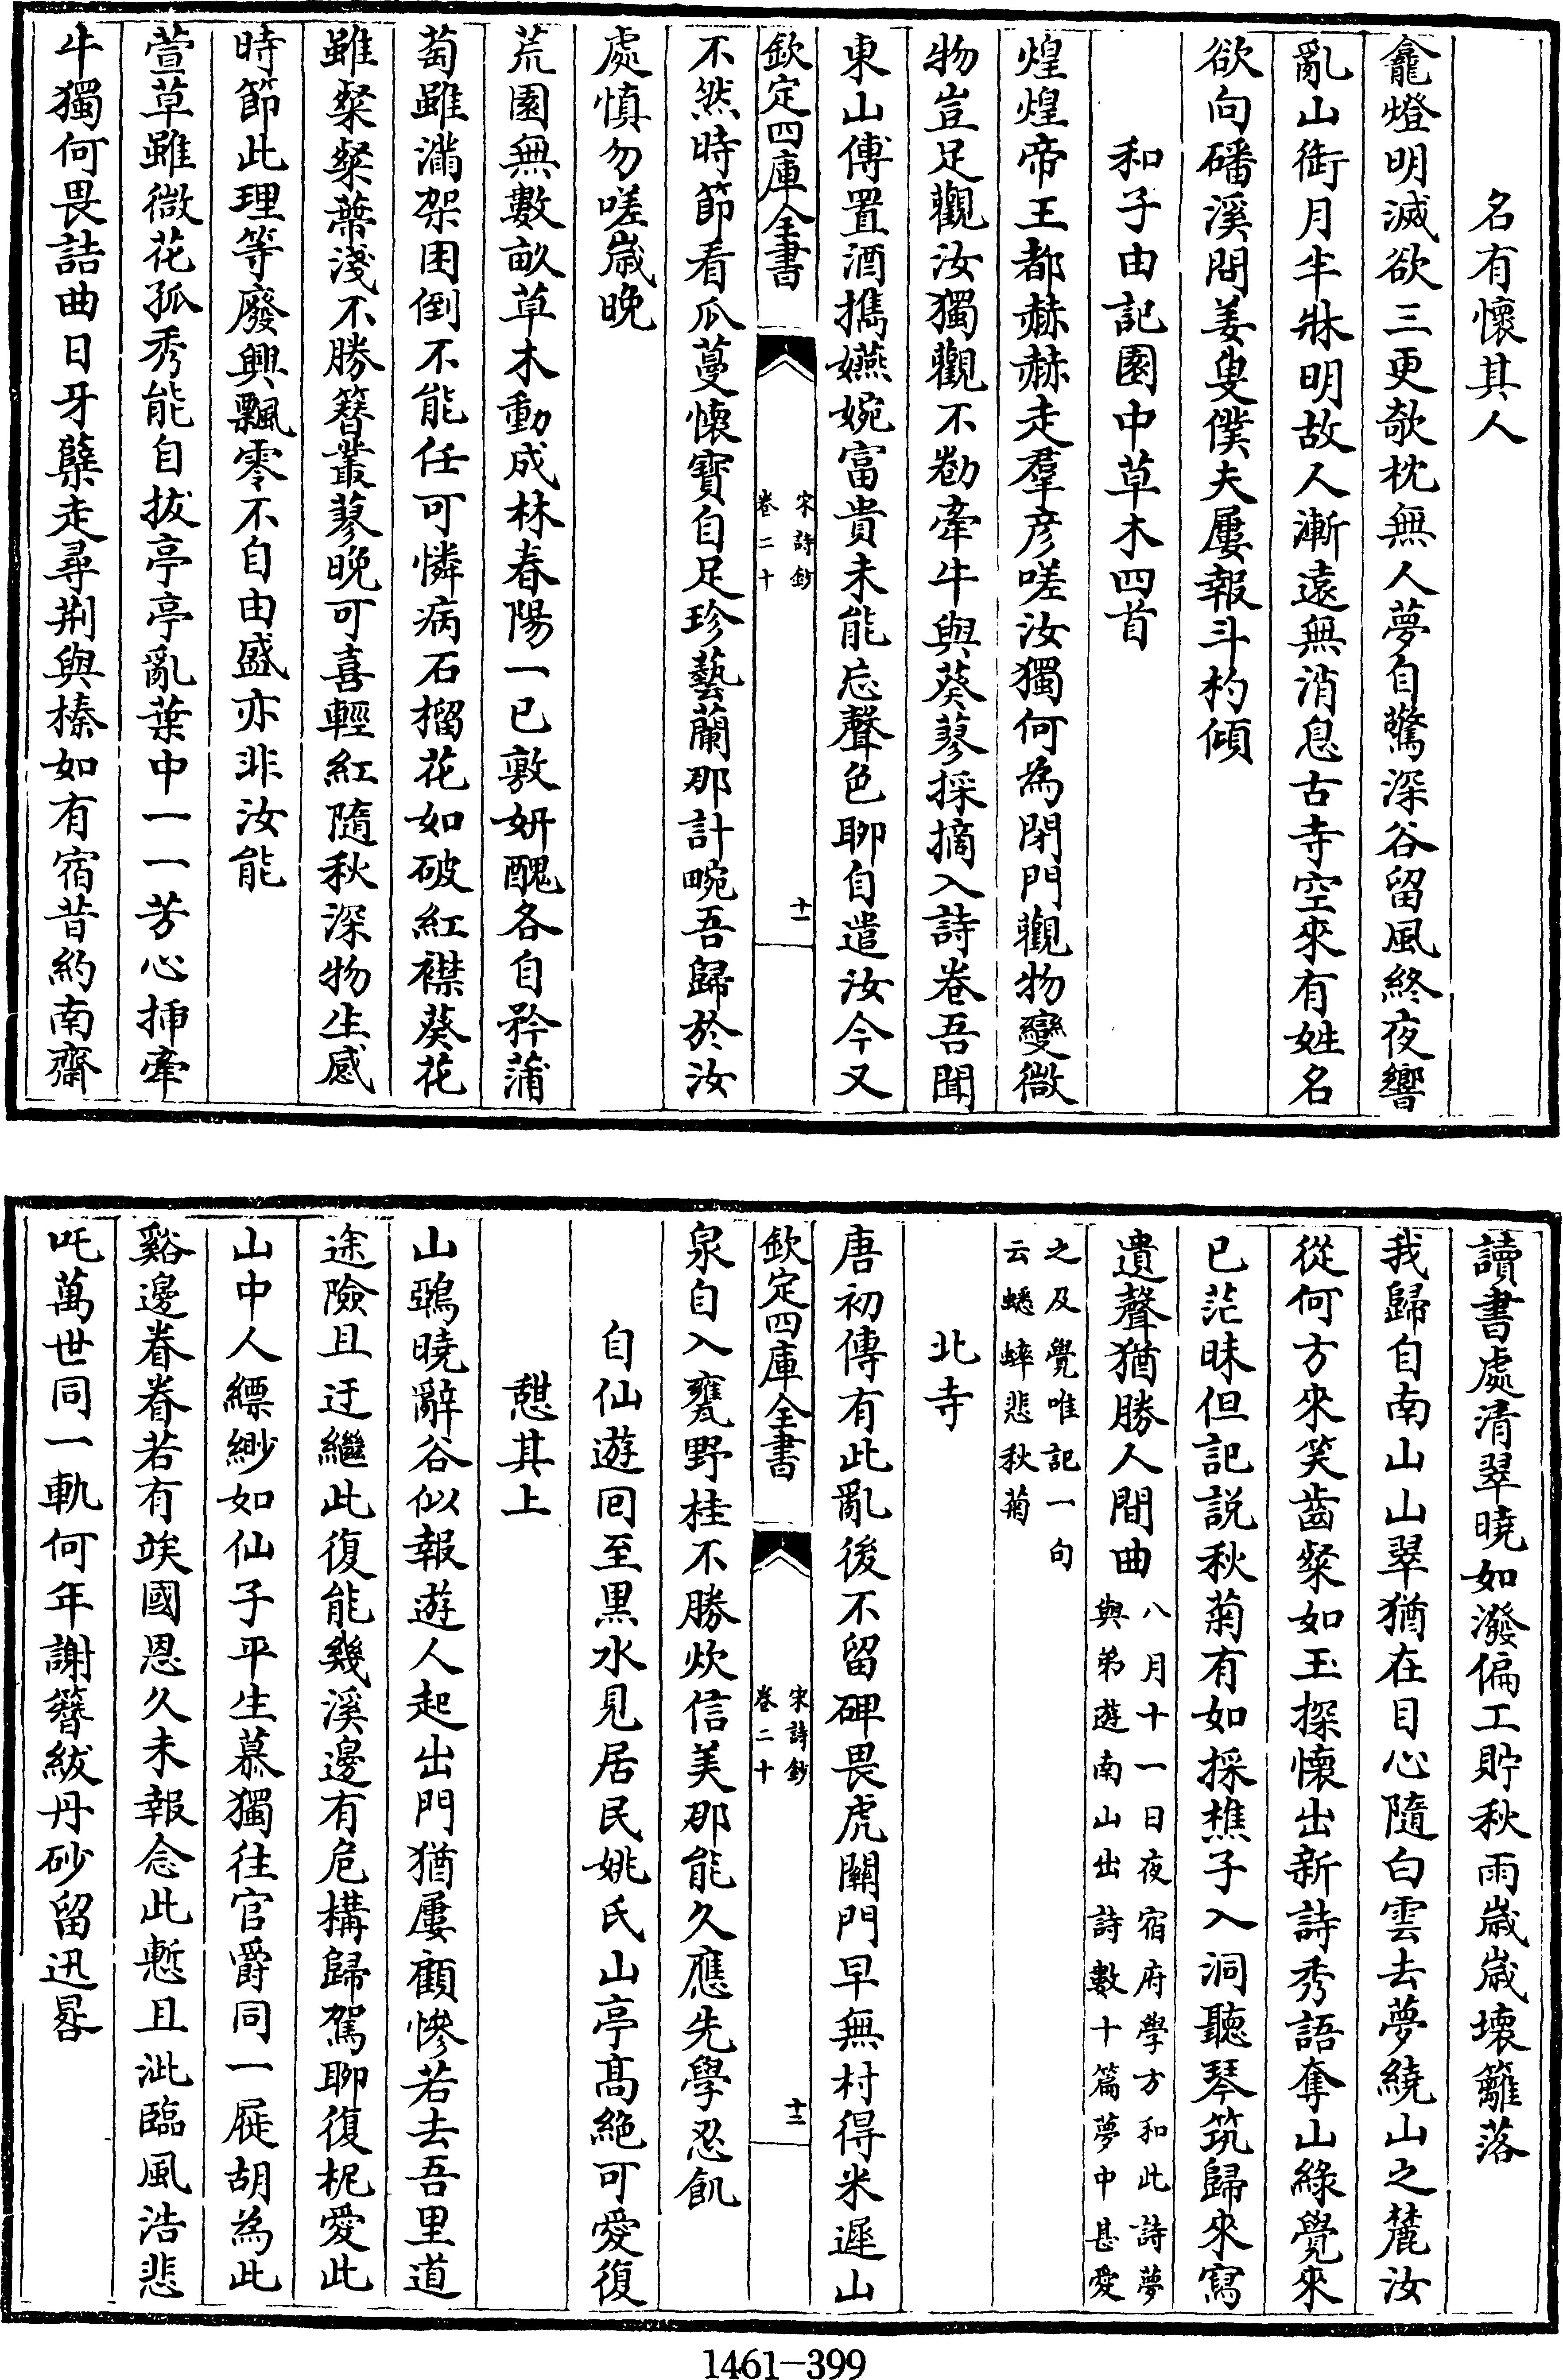 名有懷其人
龕燈明滅欲三更欹枕無人夢自驚深谷留風終夜響
亂山銜月半牀明故人漸遠無消息古寺空來有姓名
欲向磻溪問姜叟僕夫屢報斗杓傾
和子由記園中草木四首
煌煌帝王都赫赫走羣彥嗟汝獨何為閉門觀物變微
物豈足觀汝獨觀不勌牽牛與葵蓼採摘入詩卷吾聞
東山傅置酒攜嬿婉富貴未能忘聲色聊自遣汝今又
欽定四庫全書
宋詩鈔
卷二十
十一
不然時節看瓜蔓懷寶自足珍藝蘭那計畹吾歸於汝
處慎勿嗟嵗晚
荒園無數畝草木動成林春陽一已敷妍醜各自矜蒲
萄雖滿架囷倒不能任可憐病石榴花如破紅襟葵花
雖粲粲蔕淺不勝簪叢蓼晚可喜輕紅隨秋深物生感
時節此理等廢興飄零不自由盛亦非汝能
萱草雖微花孤秀能自拔亭亭亂葉中一一芳心插牽
牛獨何畏詰曲日牙蘖走尋荆與榛如有宿昔約南齋
讀書處清翠曉如潑偏工貯秋雨嵗嵗壞籬落
我歸自南山山翠猶在目心隨白雲去夢繞山之麓汝
從何方來笑齒粲如玉探懷出新詩秀語奪山綠覺來
已茫昧但記説秋菊有如採樵子入洞聽琴筑歸來寫
遺聲猶勝人間曲八月十一日夜宿府學方和此詩夢
與弟遊南山出詩數十篇夢中甚愛
之及覺唯記一句
云蟋蟀悲秋菊
北寺
唐初傳有此亂後不留碑畏虎關門早無村得米遲山
欽定四庫全書
宋詩鈔
卷二十
十二
泉自入甕野桂不勝炊信美那能久應先學忍飢
自仙遊囘至黒水見居民姚氏山亭髙絶可愛復
憇其上
山鵶曉辭谷似報遊人起出門猶屢顧慘若去吾里道
途險且迂繼此復能幾溪邊有危構歸駕聊復柅愛此
山中人縹緲如仙子平生慕獨往官爵同一屣胡為此
谿邊眷眷若有竢國恩久未報念此慙且泚臨風浩悲
吒萬世同一軌何年謝簪紱丹砂留迅晷
1461-399